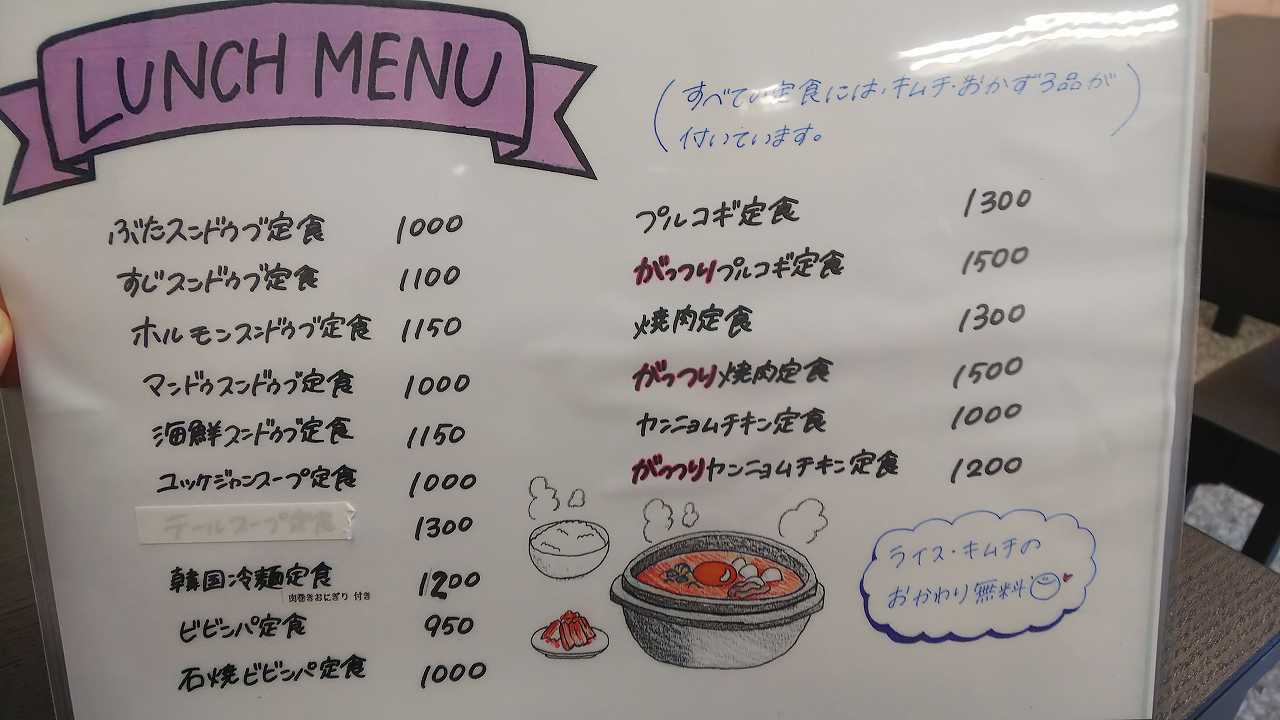 LUNCH MENU
(すべての定食には、キムチ・おかず3品が
付いています。)
ぶたスンドゥブ定食 1000
すじスンドゥブ定食 1100
ホルモンスンドゥブ定食 1150
マンドゥスンドゥブ定食 1000
海鮮スンドゥブ定食 1150
ユッケジャンスープ定食 1000
テールスープ定食 1300
韓国冷麺定食 1200
肉巻きおにぎり 付き
ビビンパ定食 950
石焼ビビンパ定食 1000
プルコギ定食 1300
がっつりプルコギ定食 1500
焼肉定食 1300
がっつり焼肉定食 1500
ヤンニョムチキン定食 1000
がっつりヤンニョムチキン定食 1200
ライス・キムチの
おかわり無料